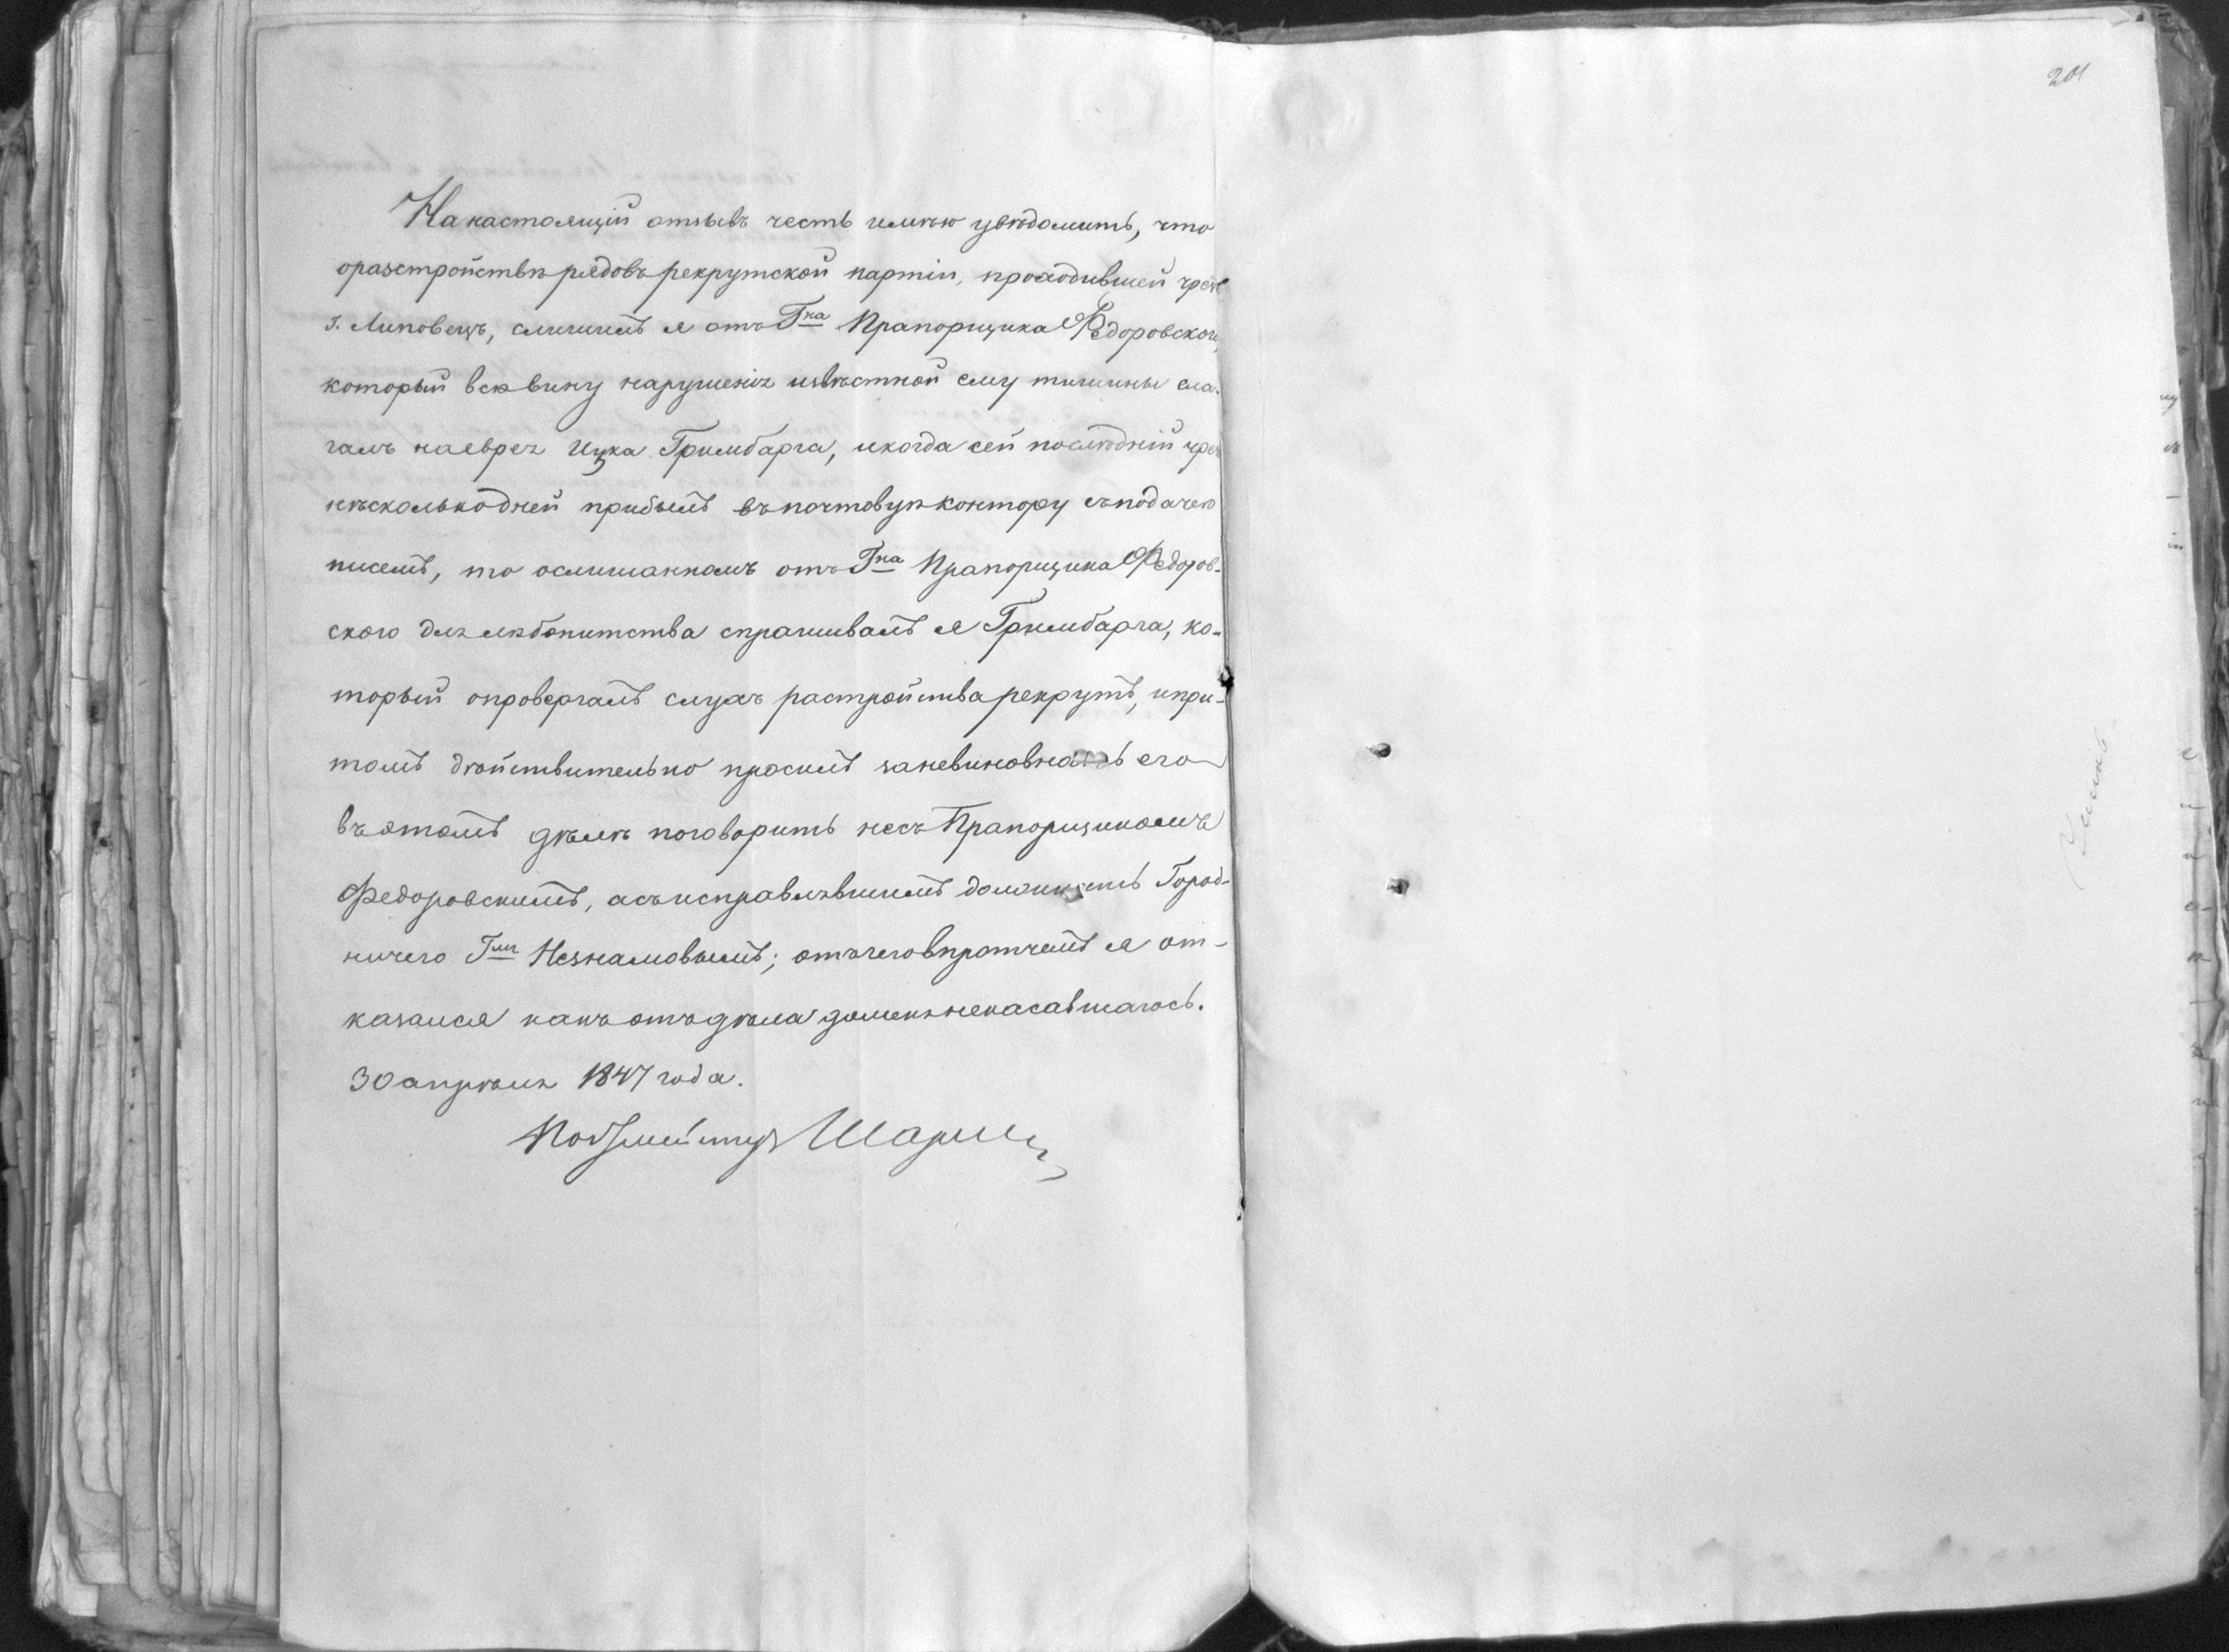 201
На настоящій отзывъ честь имѣю увѣдомить, что
о разстройствѣ рядовъ рекрутской партіи, проходившей чрезъ
г. Липовецъ, слышалъ я отъ Гна Прапорщика Федоровского,
который всю вину нарушенія извѣстной ему тишины сла-
галъ на еврея Ицка Гримбарга, и когда сей послѣдній чрезъ
нѣсколько дней прибылъ въ почтовую контору съ подачею
писемъ, то о слышанномъ отъ Гна Прапорщика Федоров-
ского для любопитства спрашивалъ я Гримбарга, ко-
торый опровергалъ слухъ растройства рекрутъ, и при-
томъ дѣйствительно просилъ за невиновность его
въ этомъ дѣлѣ поговорить не съ Прапорщикомъ
Федоровскимъ, а съ исправлявшимъ должность Город-
ничего Гмъ Незнамовымъ; отъ чего впротчемъ я от-
казался какъ отъ дѣла до меня некасавшагось.
30 апрѣля 1847 года.
Почтмейстеръ